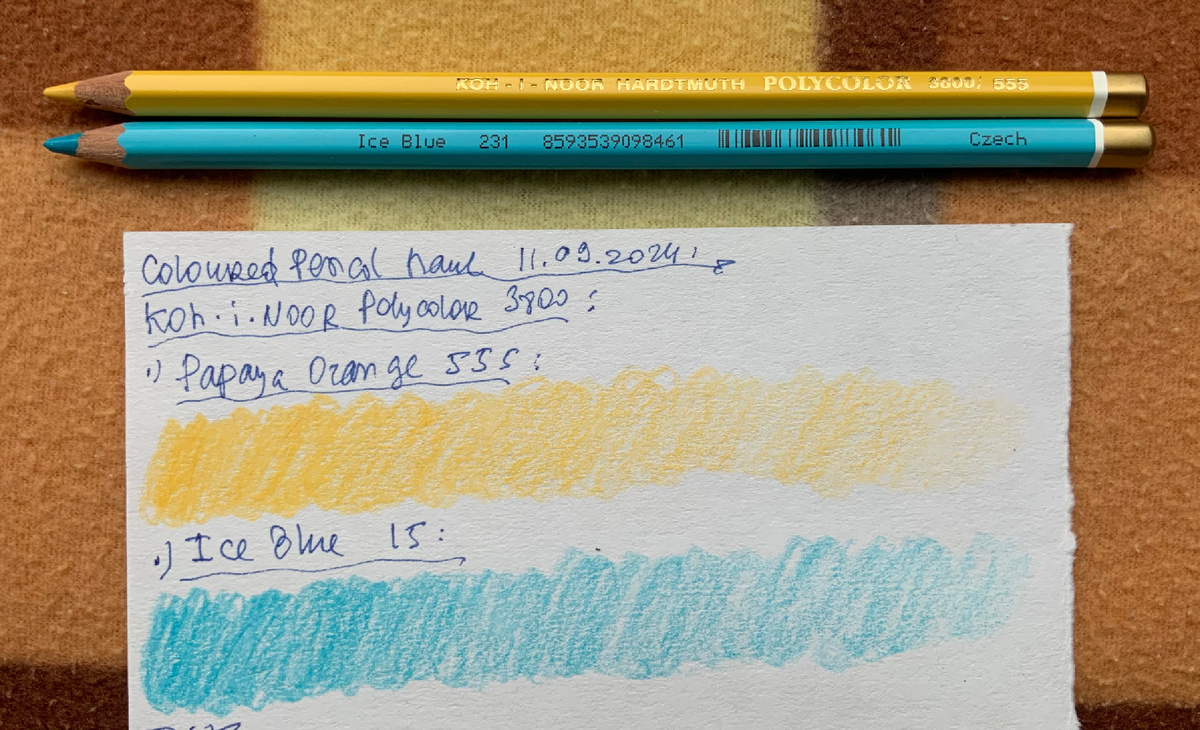 KOH-I-NOOR HARDTMUTH POLYCOLOR 3800/ 555
Ice Blue 231 8593539098461 Czech
Coloured Pencil haul 11.09.2024:
KOh-i-NOOR Polycolor 3800:
.) Papaya Orange 555:
.) Ice Blue 15: